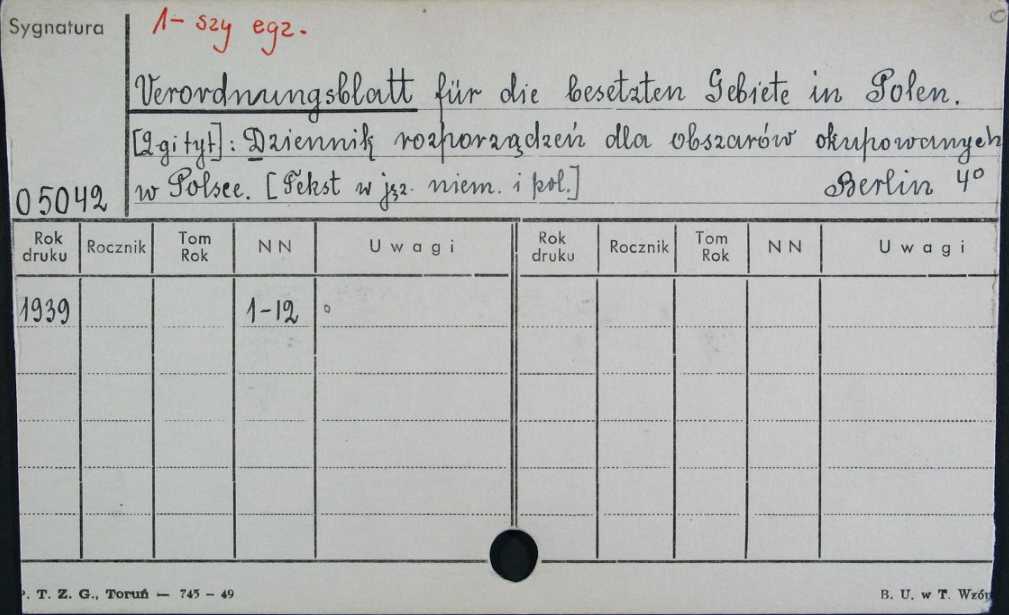 Sygnatura
1-szy egz.
Verordnungsblatt für die besetzten Gebiete in Polen.
[2-gi tyt]: Dziennik rozporządzeń dla obszarów okupowanych
w Polsce. [Tekst w jęz. niem. i pol.] Berlin 4⁰
05042
Rok druku Rocznik Tom Rok NN Uwagi Rok druku Rocznik Tom Rok NN Uwagi
1939 1-12 °
P. T. Z. G., Toruń — 745 – 49 B. U. w T. Wzór